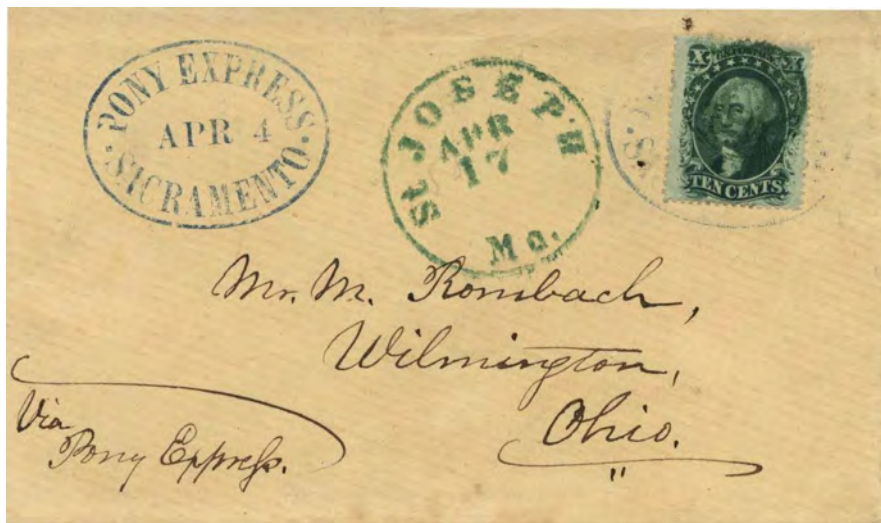 PONY EXPRESS
APR 4
SACRAMENTO.
St JOSEPH
APR
17
Mo.
X X
TEN CENTS.
Mr. M. Rombach,
Wilmington,
Ohio.
Via
Pony Express.